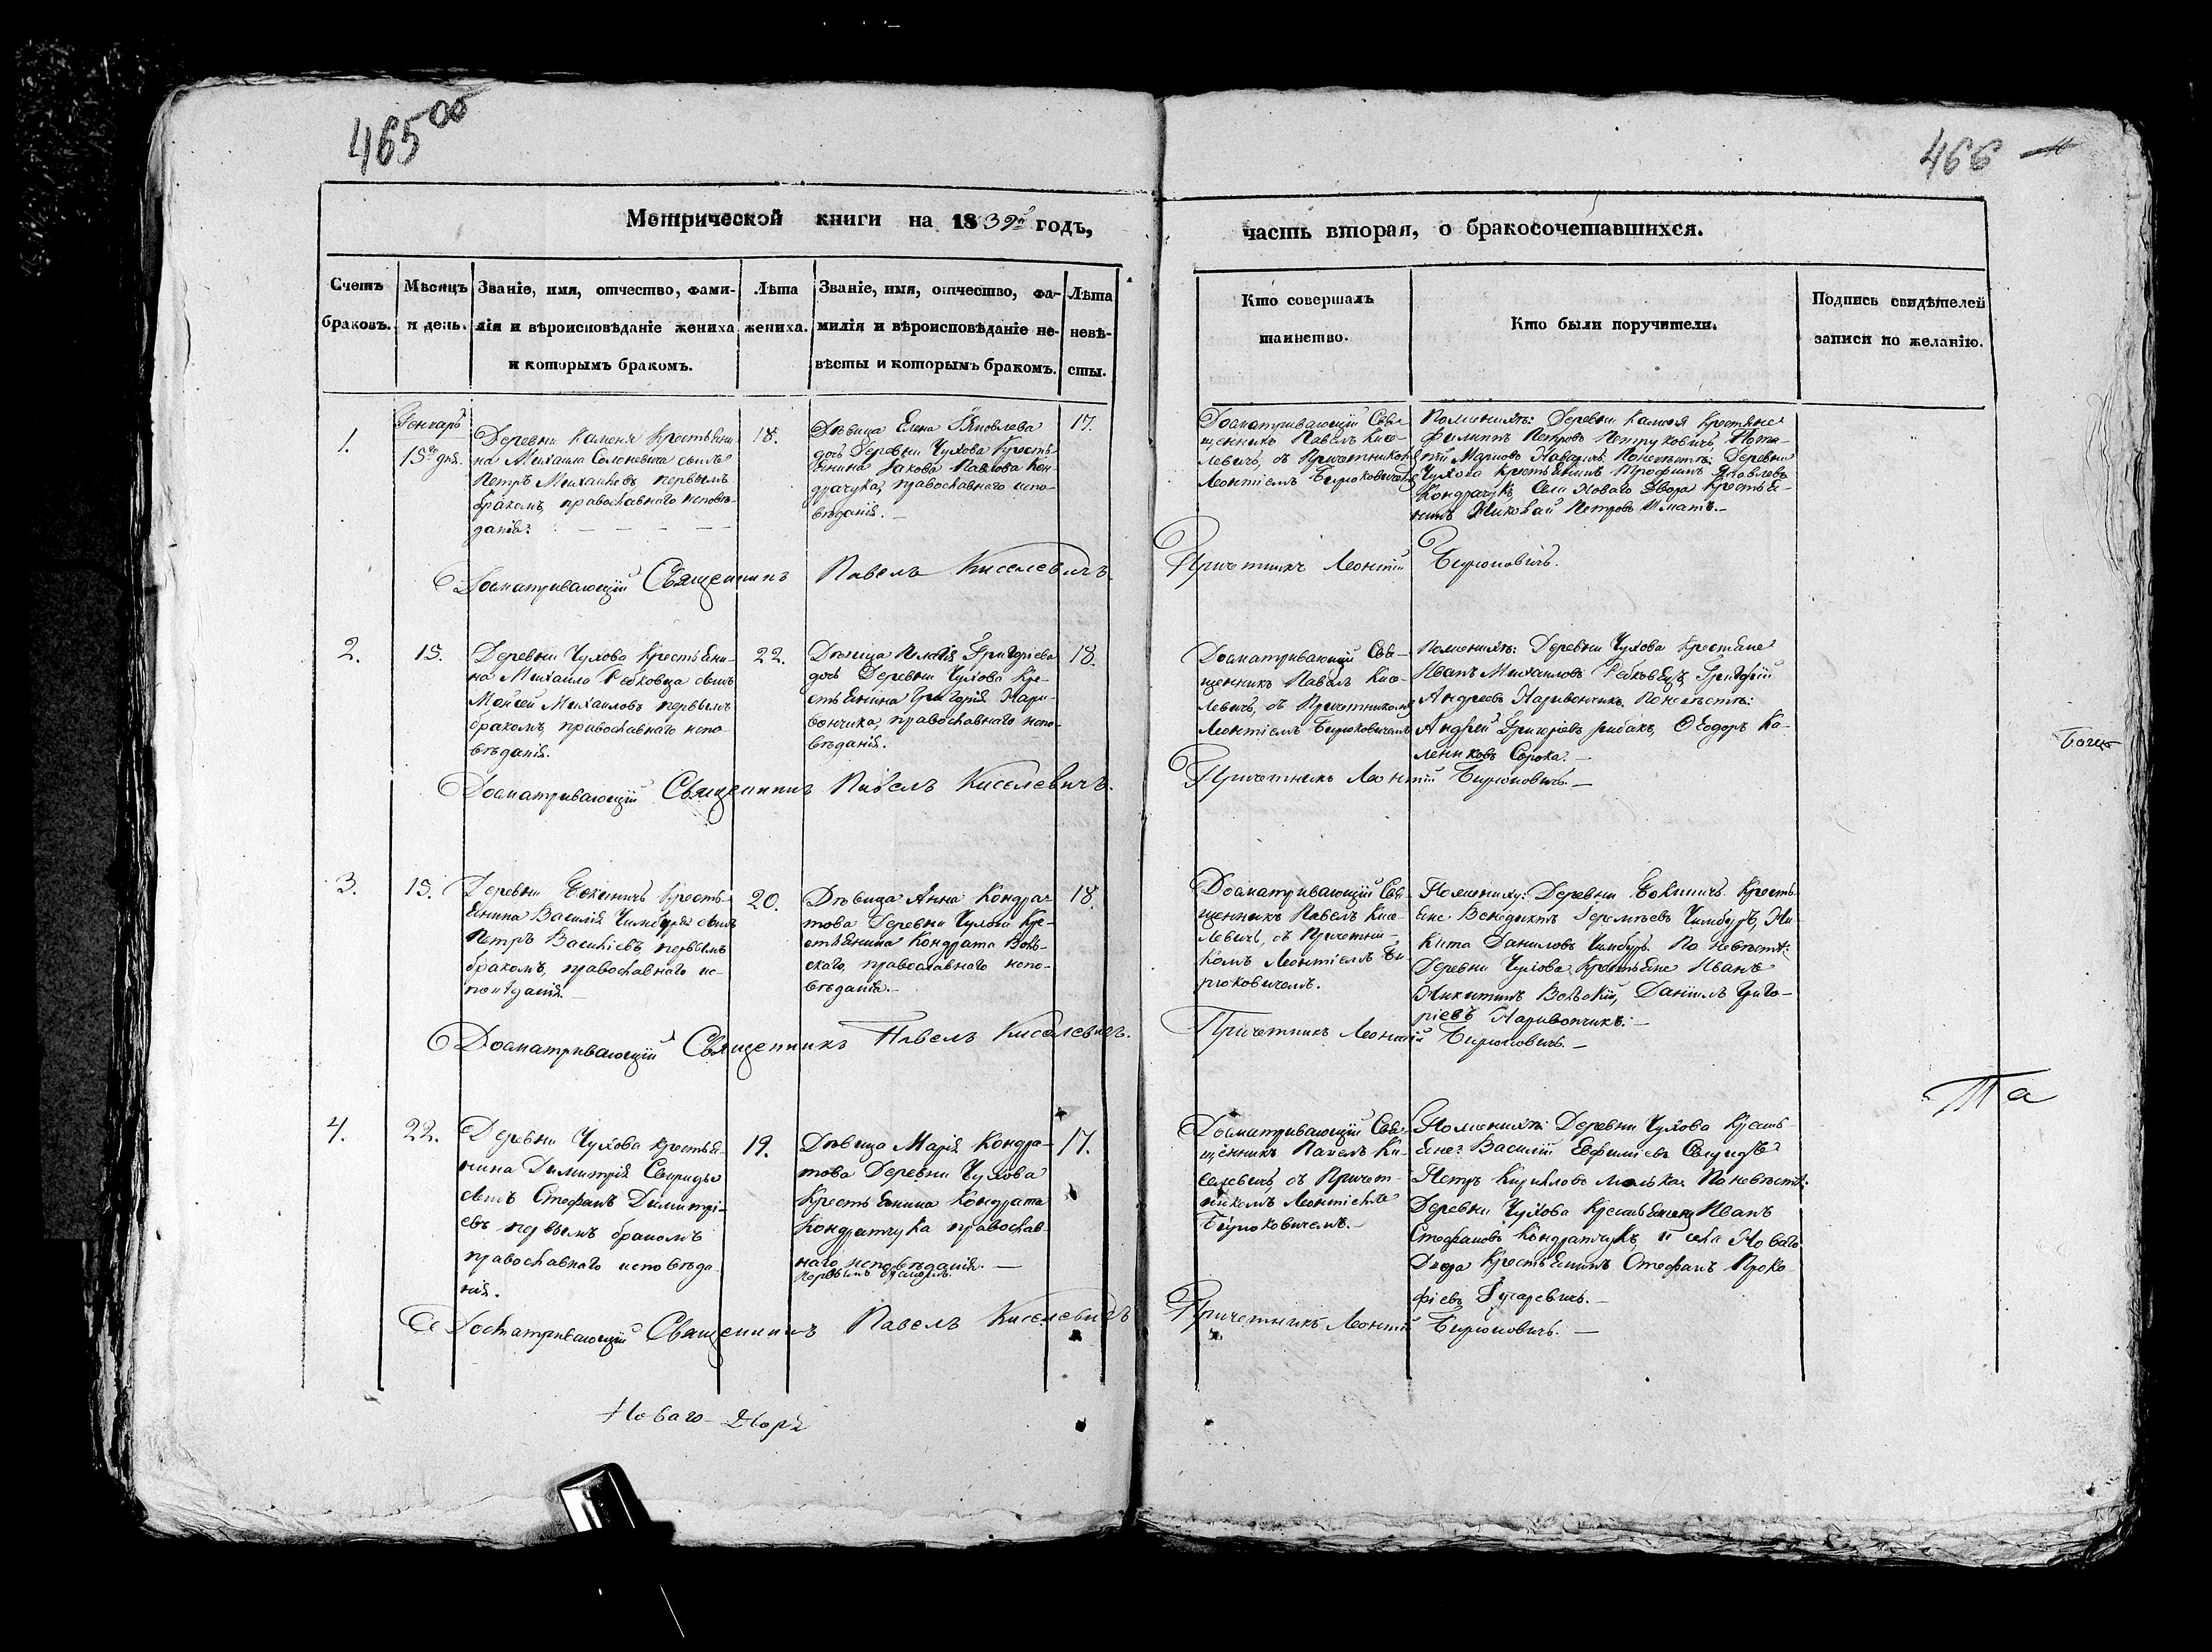 465
466
Метрической книги на 1839й годъ,
часть вторая, о бракосочетавшихся.
Счетъ
браковъ.
Мѣсяцъ
и день.
Званіе, имя, отчество, фами-
лія и вѣроисповѣданіе жениха
и которымъ бракомъ.
Лѣта
жениха.
Званіе, имя, отчество, фа-
милія и вѣроисповѣданіе не-
вѣсты и которымъ бракомъ.
Лѣта
невѣ-
сты.
Кто совершалъ
таинство.
Кто были поручители.
Подпись свидѣтелей
записи по желанію.
1.
Генкаръ
15го дня.
Деревни Каменя Крестьяни
на Михаила Селоневича сынъ
Петръ Михаиловъ первымъ
бракомъ, православнаго исповѣ-
данія.
18.
Дѣвица Елена Яковлева
дочь Деревни Чухова Кресть-
янина Iакова Павлова Кон-
драчука, православнаго испо-
вѣданія. —
17.
Досматривающій Свя-
щенникъ Павелъ Кисе-
левичъ, съ Причетником
Леонтіемъ Бирюковичемъ
По женихѣ: Деревни Каменя Крестяне
Филиппъ Петровъ Петруковичъ,
По невѣстѣ: Деревни
Чухова Крестьянинъ Трофимъ Яковлевъ
Кондрачукъ, Села Новаго Двора Крестья-
нинъ Николай Петровъ
Досматривающій Священникъ Павелъ Киселевичъ.
Причетникъ Леонтій Бирюковичъ.
2.
15.
Деревни Чухова Крестьяни-
на Михаила Ребковца сынъ
Моисей Михаиловъ первымъ
бракомъ, православнаго испо-
вѣданія.
22.
Дѣвица Григориева
дочь Деревни Чухова Кре-
стьянина Григорія Нари-
вончика, православнаго испо-
вѣданія.
18.
Досматривающій Свя-
щенникъ Павелъ Кисе-
левичъ, съ Причетникомъ
Леонтіемъ Бирюковичемъ
По женихѣ: Деревни Чухова Крестяне
Иванъ Михаиловъ Ребковецъ, Григорій
Андреевъ Наривончикъ. По невѣстѣ:
Андрей Григоріевъ рибакъ, Ѳеодоръ Ка-
лениковъ Сорока. —
Досматривающій Священникъ Павелъ Киселевичъ.
Причетникъ Леонтій Бирюковичъ. —
3.
15.
Деревни Крестъ-
янина Василія Чимбуря сынъ
Петръ Василіевъ первымъ
бракомъ, православнаго ис-
повѣданія. —
20.
Дѣвица Анна Кондра-
това Деревни Чухова Кре-
стьянина Кондрата Воль-
скаго, православнаго испо-
вѣданія. —
18.
Досматривающій Свя-
щенникъ Павелъ Кисе-
левичъ, съ Причетни-
комъ Леонтіемъ Би-
рюковичемъ. —
По жениху: Деревни Кресть-
яне Венедиктъ Iереміевъ Чимбуръ, Ни-
кита Даниловъ Чимбуръ. По невѣстѣ:
Деревни Чухова Крестьяне Иванъ
Никитинъ Вольскій, Даніилъ Григо-
ріевъ Наривончикъ. —
Досматривающій Священникъ Павелъ Киселевичъ.
Причетникъ Леонтій Бирюковичъ. —
4.
22.
Деревни Чухова Крестья-
нина Димитрія Свириды
сынъ Стефанъ Димитрі-
евъ первымъ бракомъ
православнаго исповѣда-
нія.
19.
Дѣвица Марія Кондра-
това Деревни Чухова
Крестьянина Кондрата
Кондратчука православ-
наго исповѣданія. —
первымъ бракомъ.
17.
Досматривающій Свя-
щенникъ Павелъ Ки-
селевичъ, съ Причет-
никомъ Леонтіемъ
Бирюковичемъ. —
По женихѣ: Деревни Чухова Кресть-
яне Василій Евфиміевъ Свирида
Петръ Кириловъ По невѣстѣ:
Деревни Чухова Крестьянинъ Иванъ
Стефановъ Кондратчукъ, и села Новаго
Двора Крестьянинъ Стефанъ Проко-
фіевъ Гусаревичъ. —
Досматривающій Священникъ Павелъ Киселевичъ
Причетникъ Леонтій Бирюковичъ. —
Новаго-Двора
Та